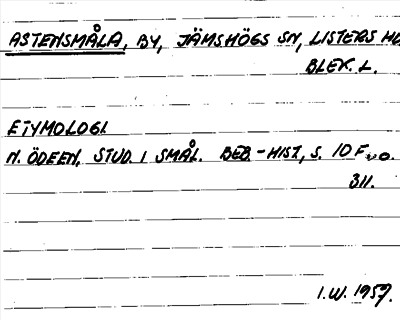 ASTENSMÅLA, BY, JÄMSHÖGS SN, LISTERS HD
BLEK. L.
ETYMOLOGI.
N. ÖDEEN, STUD. I SMÅL. BEB.-HIST, S. 10 F. O.
311.
I.W. 1957.